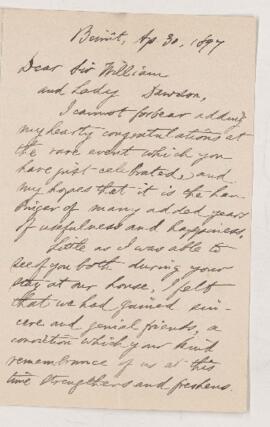 Beirût, Ap. 30, 1897
Dear Sir William
and Lady Dawson,
I cannot forbear adding
my hearty congratulations at
the rare event which you
have just celebrated, and
my hopes that it is the har-
binger of many added years
of usefulness and happiness.
Little as I was able to
see of you both during your
stay at our house, I felt
that we had gained sin-
cere and genial friends, a
conviction which your kind
remembrance of us at this
time strengthens and freshens.